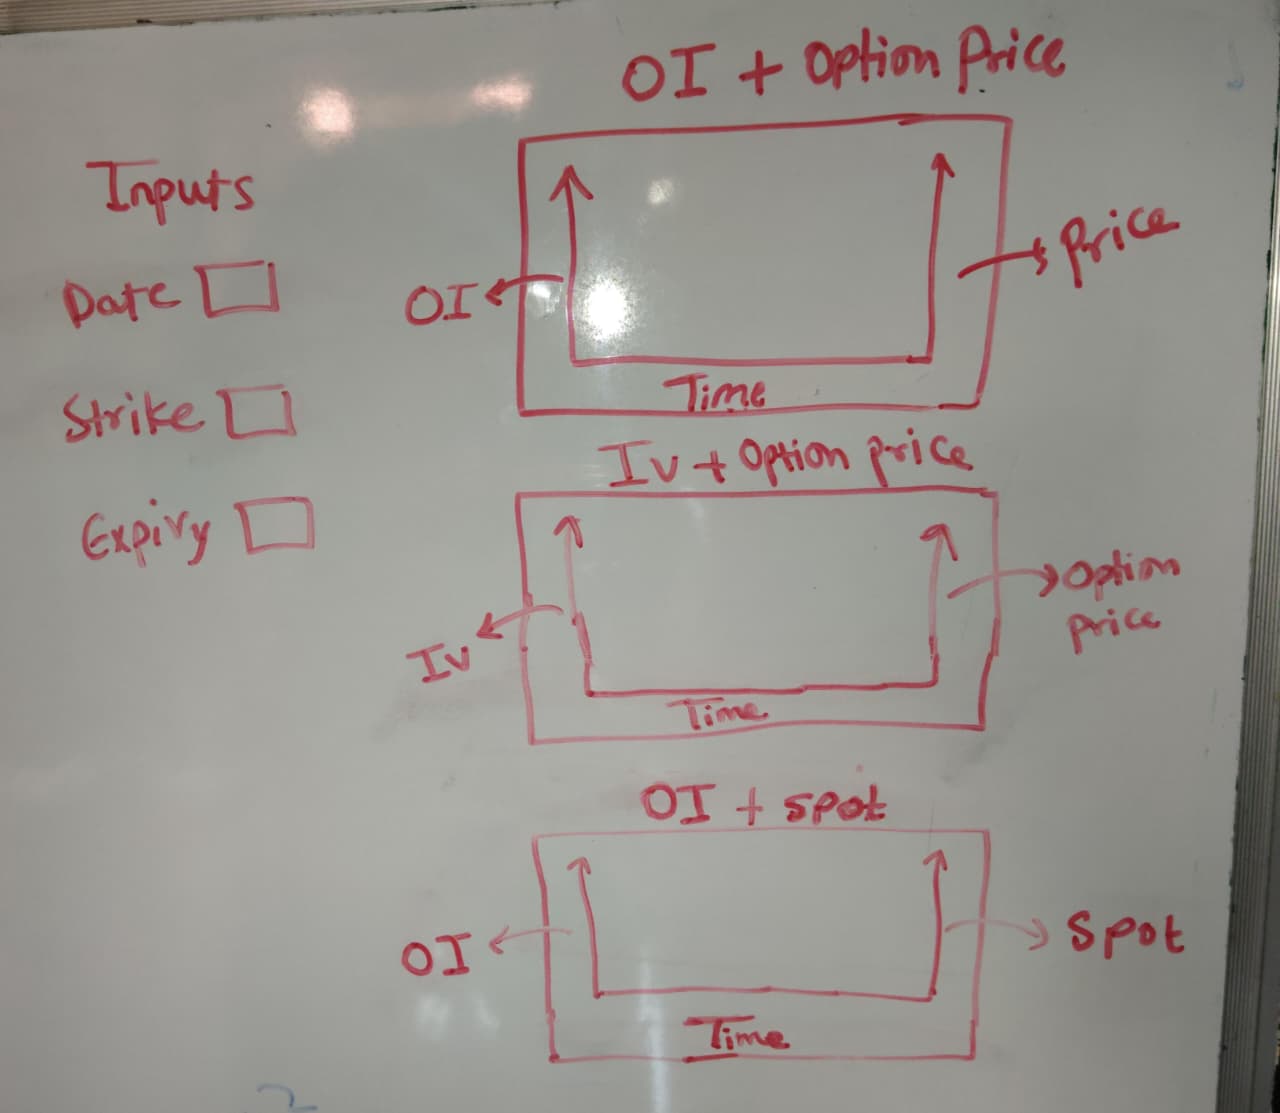 Inputs
Date
Strike
Expiry
OI + Option Price
OI
Price
Time
Iv + Option price
Iv
Option
price
Time
OI + Spot
OI
Spot
Time